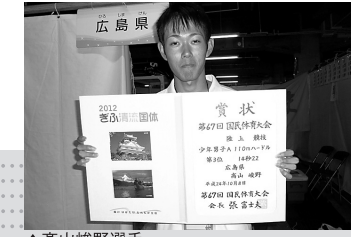 ひろ しま けん
広島県
2012
ぎふ清流国体
賞状
第67回 国民体育大会
陸上 競技
少年男子A 110mハードル
第3位 14秒22
広島県
高山 峻野
平成24年10月8日
第67回 国民体育大会
会長 張 富士夫
▲高山峻野選手